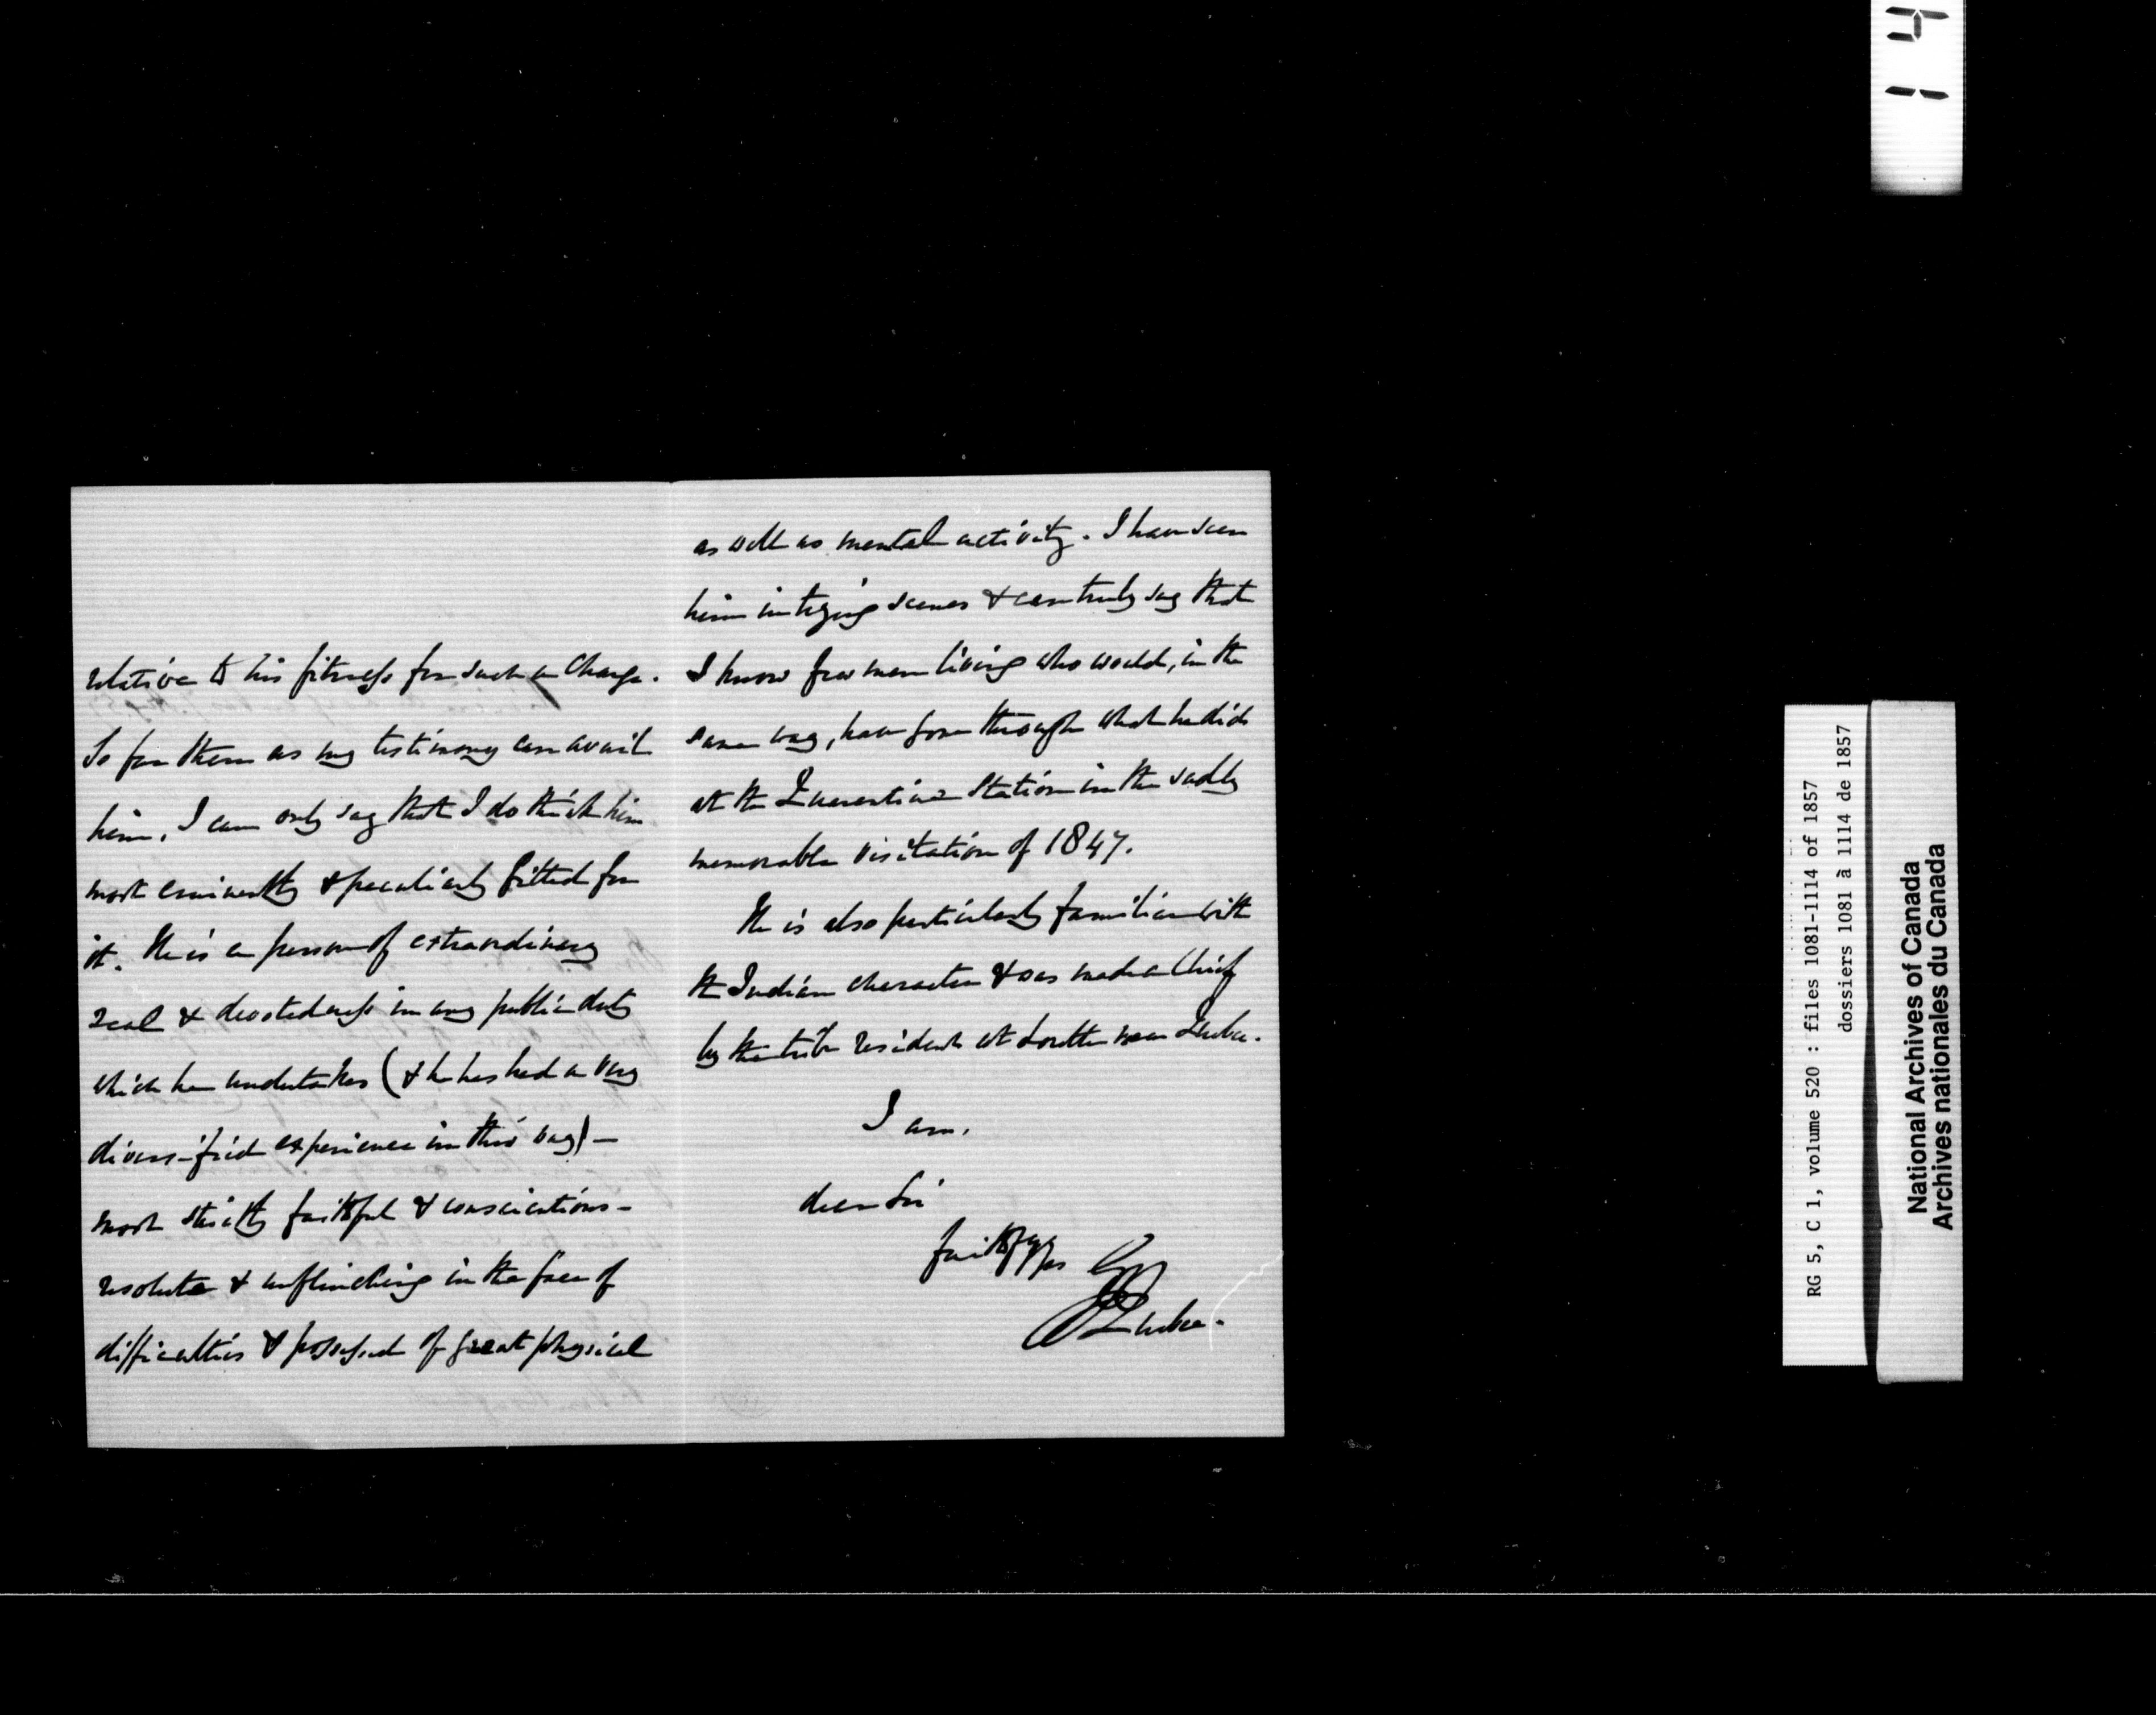 relative to his fitness for such a Charge.
So far then as my testimony can avail
him, I can only say that I do think him
most eminently & peculiarly fitted for
it. He is a person of extraordinary
zeal & devotedness in any public duty
which he undertakes (& he has had a very
diversified experience in this way) –
most strictly faithful & conscientious –
resolute & unflinching in the face of
difficulties & possessed of great physical
as well as mental activity. I have seen
him in trying scenes & can truly say that
I know few men living who would, in the
same way, have gone through what he did
at the Quarantine Station in the sadly
memorable visitation of 1847.
He is also particularly familiar with
the Indian character & was made a Chief
by the tribe resident at Lorette near Quebec.
I am,
dear Sir
faithfy yrs
Quebec.
14
RG 5, C 1, volume 520 : files 1081-1114 of 1857
dossiers 1081 à 1114 de 1857
National Archives of Canada
Archives nationales du Canada